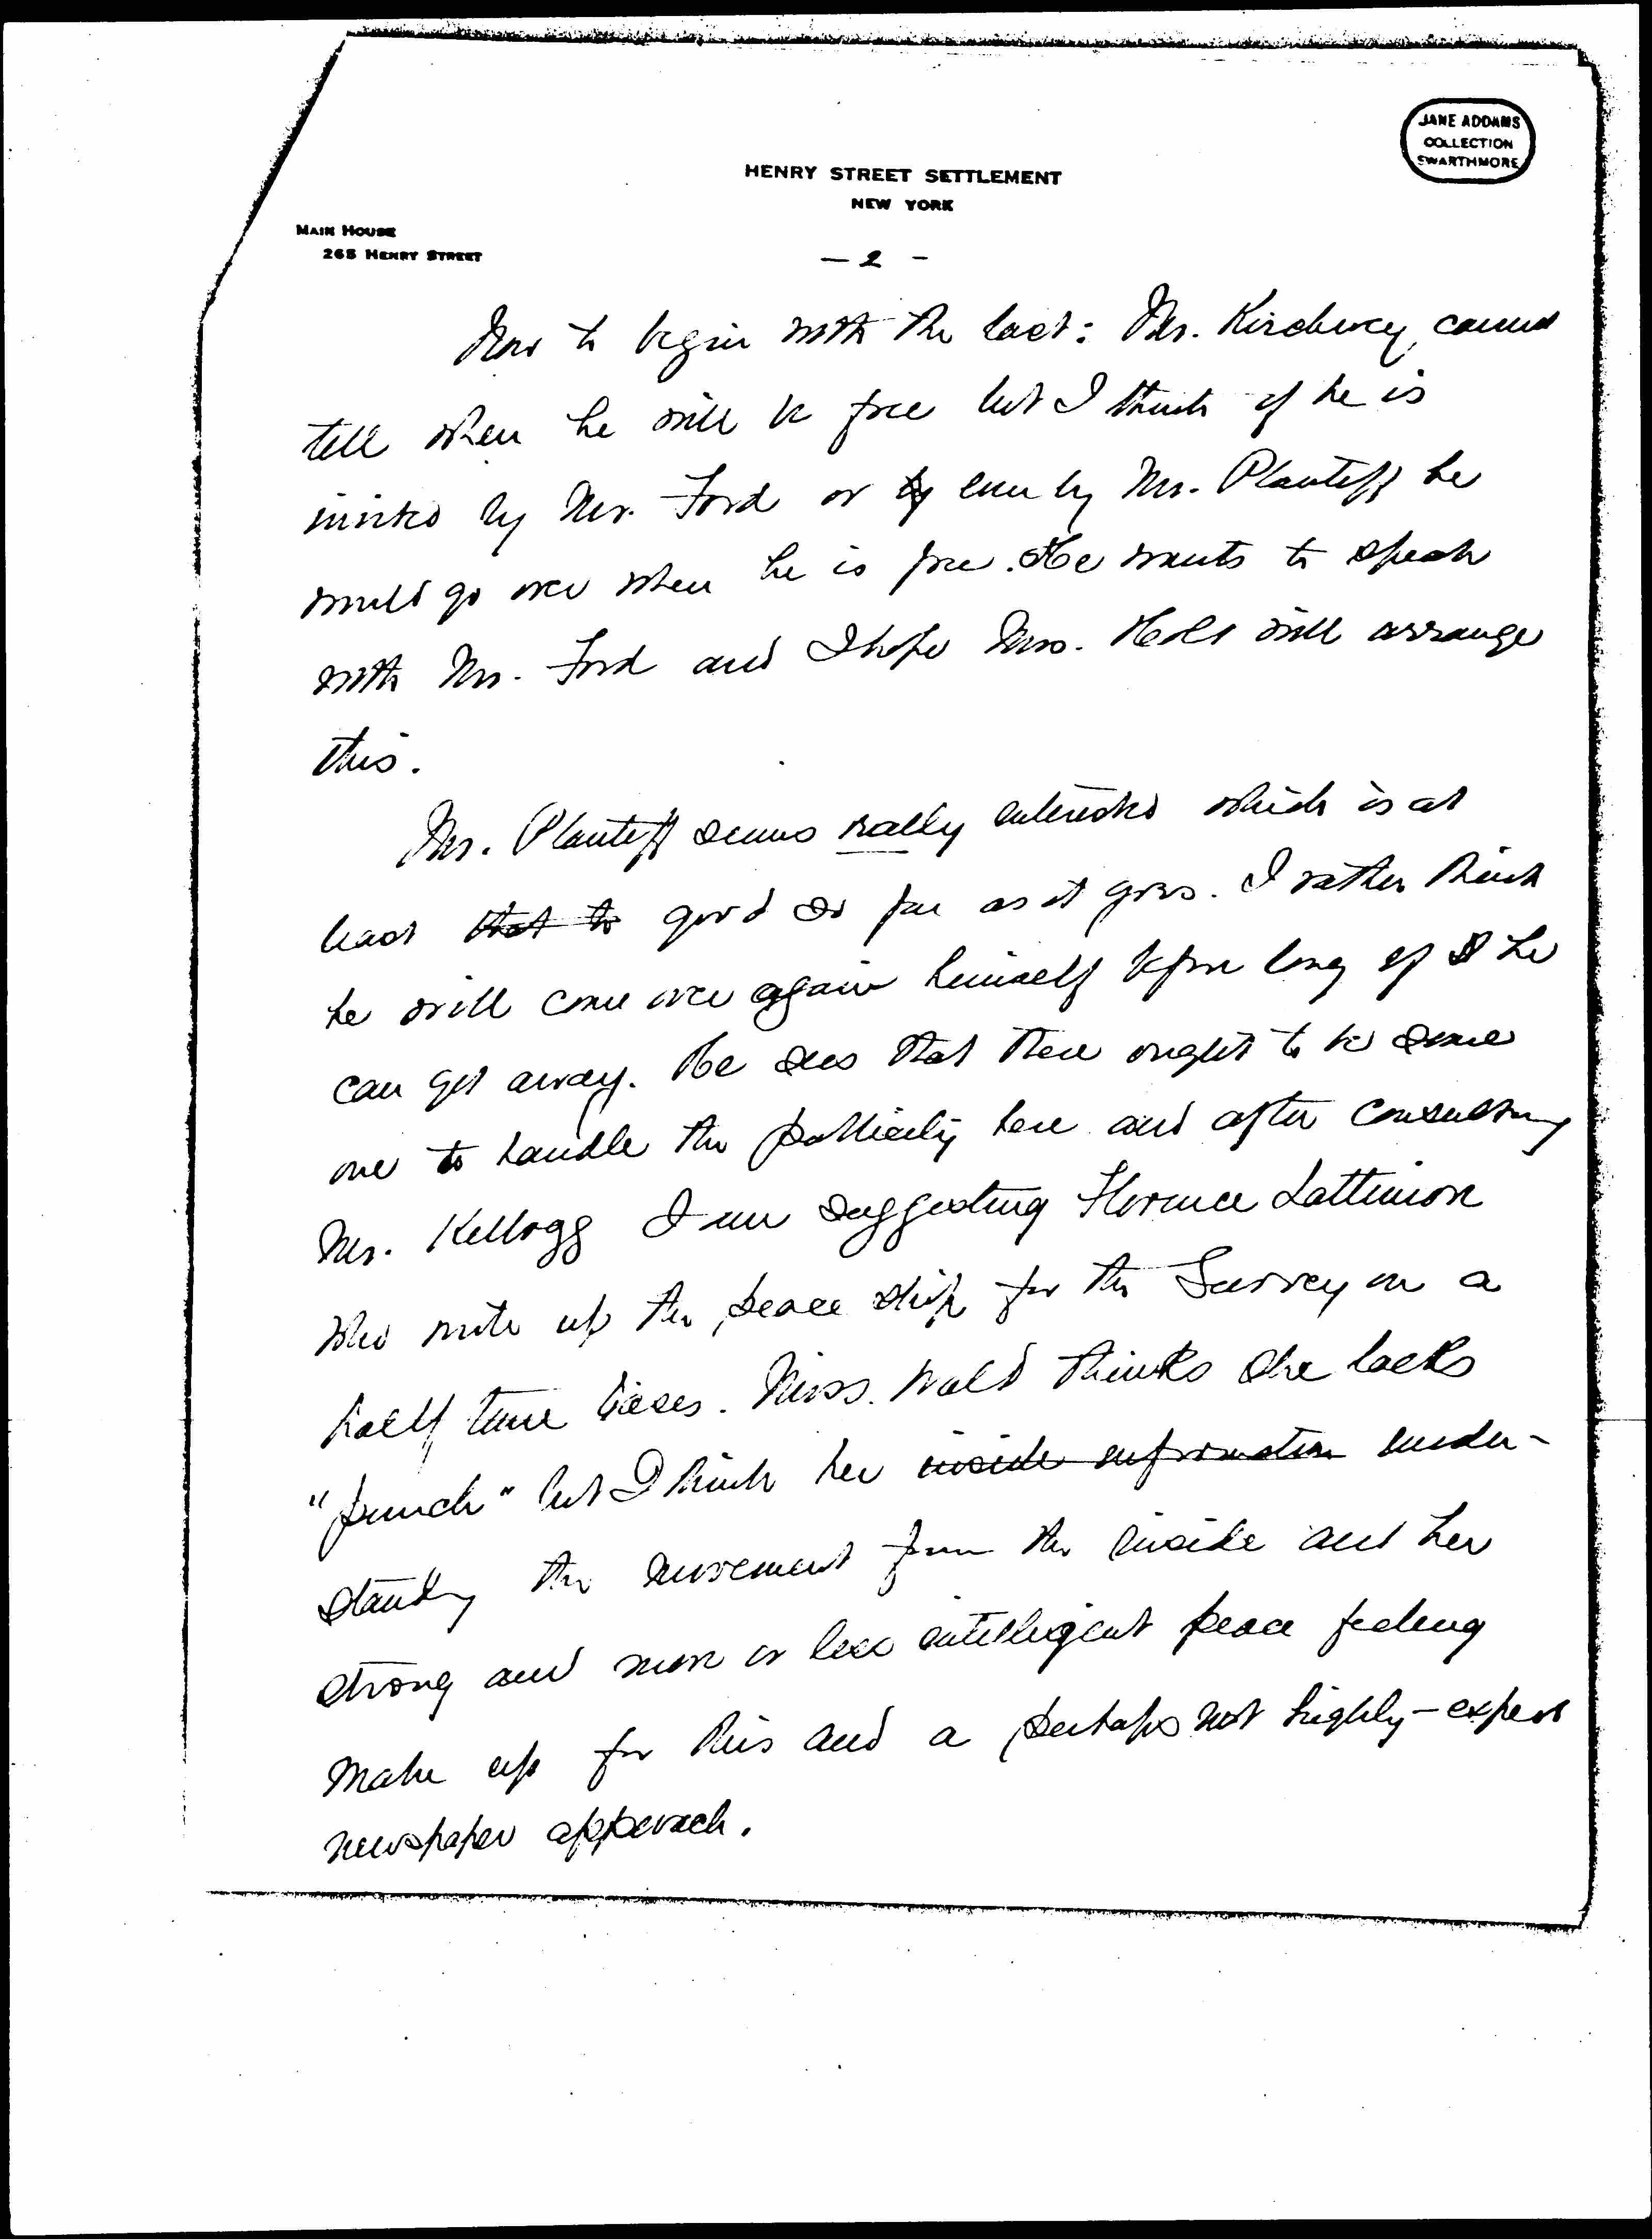 JANE ADDAMS
COLLECTION
SWARTHMORE
HENRY STREET SETTLEMENT
NEW YORK
MAIN HOUSE
265 HENRY STREET
- 2 -
Now to begin with the last: Mr. Kirchwey cannot
tell when he will be free but I think if he is
invited by Mr. Ford or by even by Mr. Plantiff he
would go over when he is free. He wants to speak
with Mr. Ford and I hope Mrs. Holt will arrange
this.
Mr. Plantiff seems really interested which is at
least that to good so far as it goes. I rather think
he will come over again himself before long if he
can get away. He sees that there ought to be some
one to handle the publicity here and after consulting
Mr. Kellogg I am suggesting Florence Lattimore
who wrote up the peace ship for the Survey on a
half time basis. Miss Wald thinks she lacks
"punch" but I think her inside information under-
standing the movement from the inside and her
strong and more or less intelligent peace feeling
make up for this and a perhaps not highly-expert
newspaper approach.